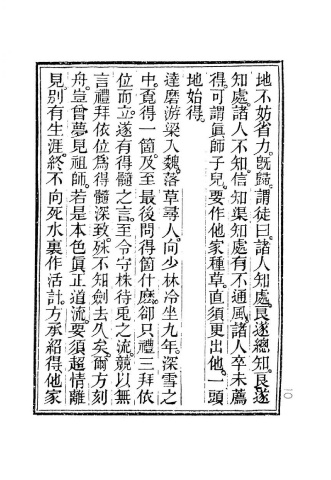 地不妨省力。旣歸。謂徒曰。諸人知處。良遂總知。良遂
知處。諸人不知。信知渠知處有不通風。諸人卒未薦
得。可謂眞師子兒。要作他家種草。直須更出他。一頭
地始得。
達磨游梁入魏。落草尋人。向少林冷坐九年。深雪之
中。覓得一箇。及至最後問得箇什麽。卻只禮三拜依
位而立。遂有得髓之言。至今守株待兎之流。競以無
言禮拜依位爲得髓深致。殊不知劍去久矣。爾方刻
舟。豈曾夢見祖師。若是本色眞正道流。要須超情離
見。別有生涯。終不向死水裏作活計。方承紹得他家
一〇